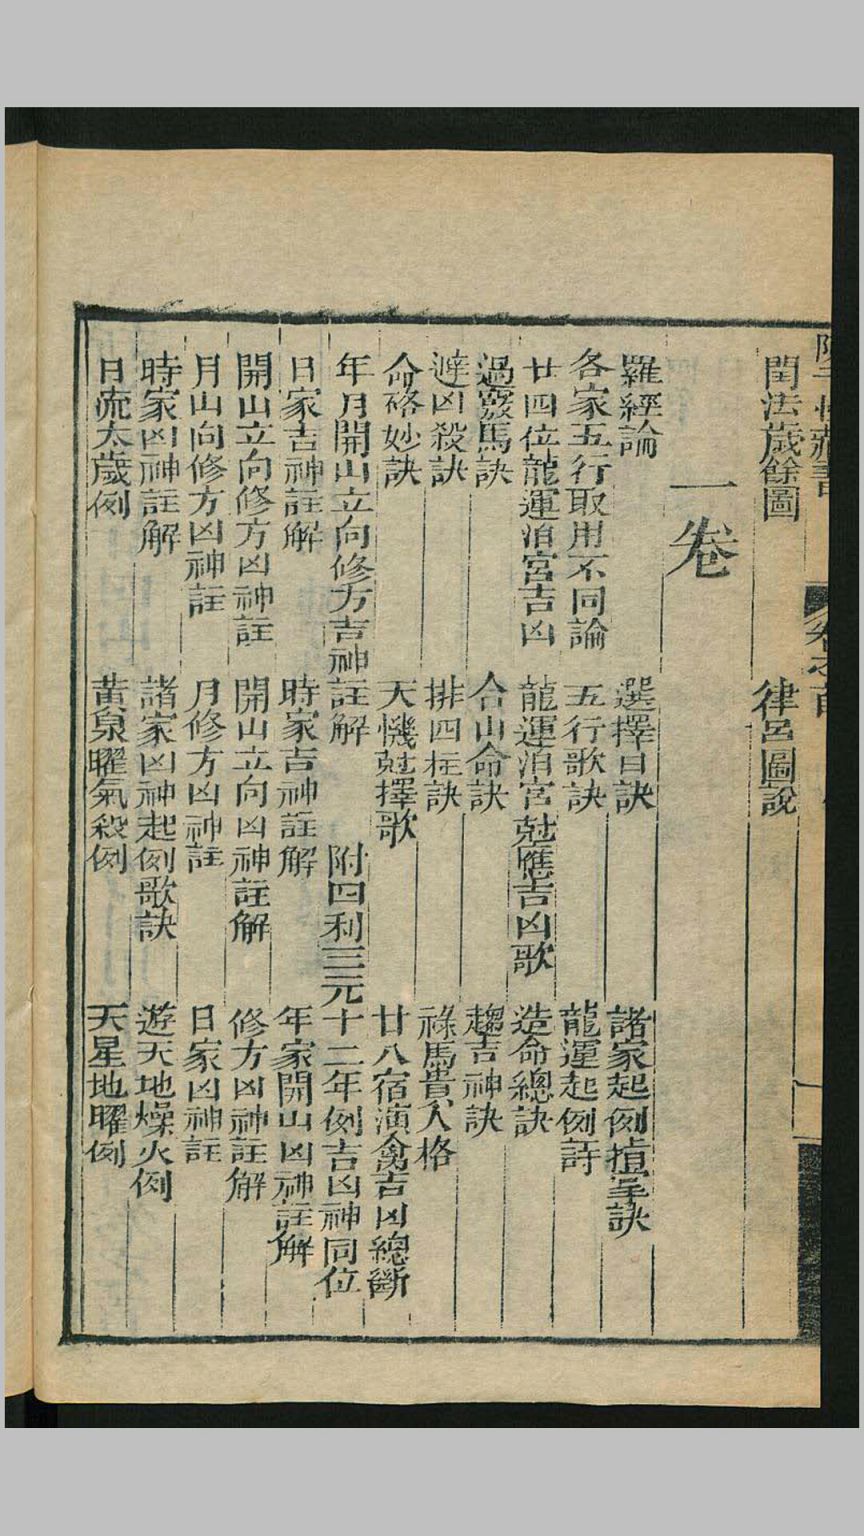 閏法歲餘圖　律呂圖說
一卷
羅經論　選擇日訣　諸家起例掌訣
各家五行取用不同論　五行歌訣　龍運起例詩
廿四位龍運泊宮吉凶　龍運泊宮尅應吉凶歌　造命總訣
過竅馬訣　合山命訣　趨吉神訣
避凶殺訣　排四柱訣　祿馬貴人格
命格妙訣　天機尅擇歌　廿八宿演禽吉凶總斷
年月開山立向修方吉神註解　附四利三元十二年例吉凶神同位
日家吉神註解　時家吉神註解　年家開山凶神註解
開山立向修方凶神註　開山立向凶神註解　修方凶神註解
月山向修方凶神註　月修方凶神註　日家凶神註
時家凶神註解　諸家凶神起例歌訣　遊天地燥火例
日流太歲例　黃泉曜氣殺例　天星地曜例